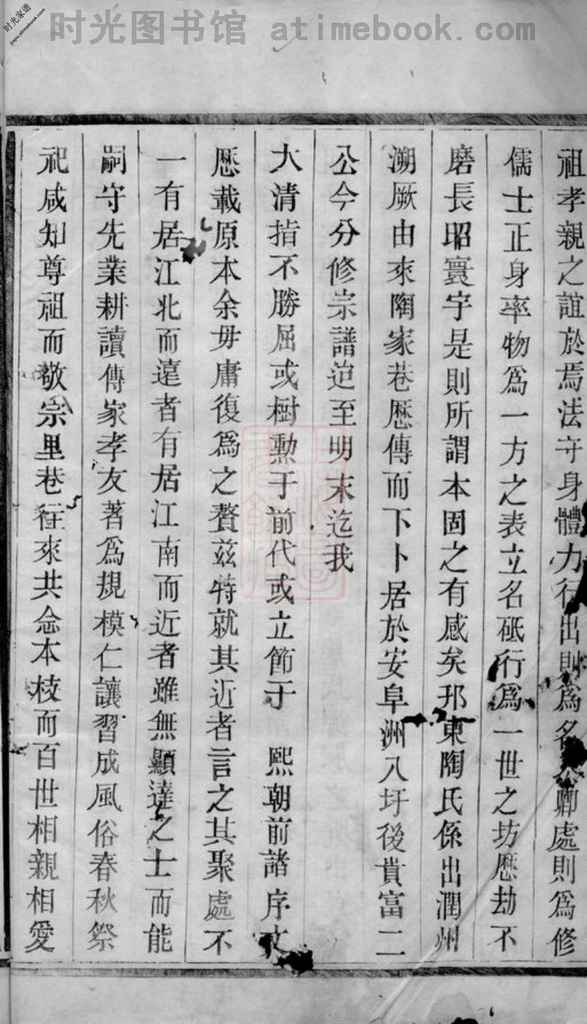 时光图书馆 atimebook.com
时光家谱
祖孝親之誼於焉法守身體力行出則爲名公卿處則爲修
儒士正身率物爲一方之表立名砥行爲一世之坊歷劫不
磨長昭寰宇是則所謂本固之有感矣邗東陶氏係出潤州
溯厥由來陶家巷歷傳而下卜居於安阜洲八圩後貴富二
公今分修宗譜迨至明末迄我
大清指不勝屈或樹勲于前代或立節于 熙朝前諸序文
歷載原本余毋庸復爲之贅茲特就其近者言之其聚處不
一有居江北而遠者有居江南而近者雖無顯達之士而能
嗣守先業耕讀傳家孝友著爲規模仁讓習成風俗春秋祭
祀咸知尊祖而敬宗里巷往來共念本枝而百世相親相愛